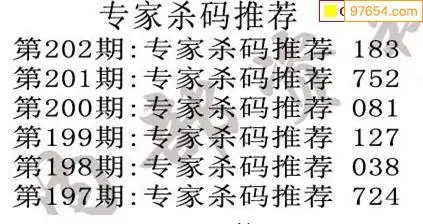 专家杀码推荐
97654.com
第202期:专家杀码推荐 183
第201期:专家杀码推荐 752
第200期:专家杀码推荐 081
第199期:专家杀码推荐 127
第198期:专家杀码推荐 038
第197期:专家杀码推荐 724